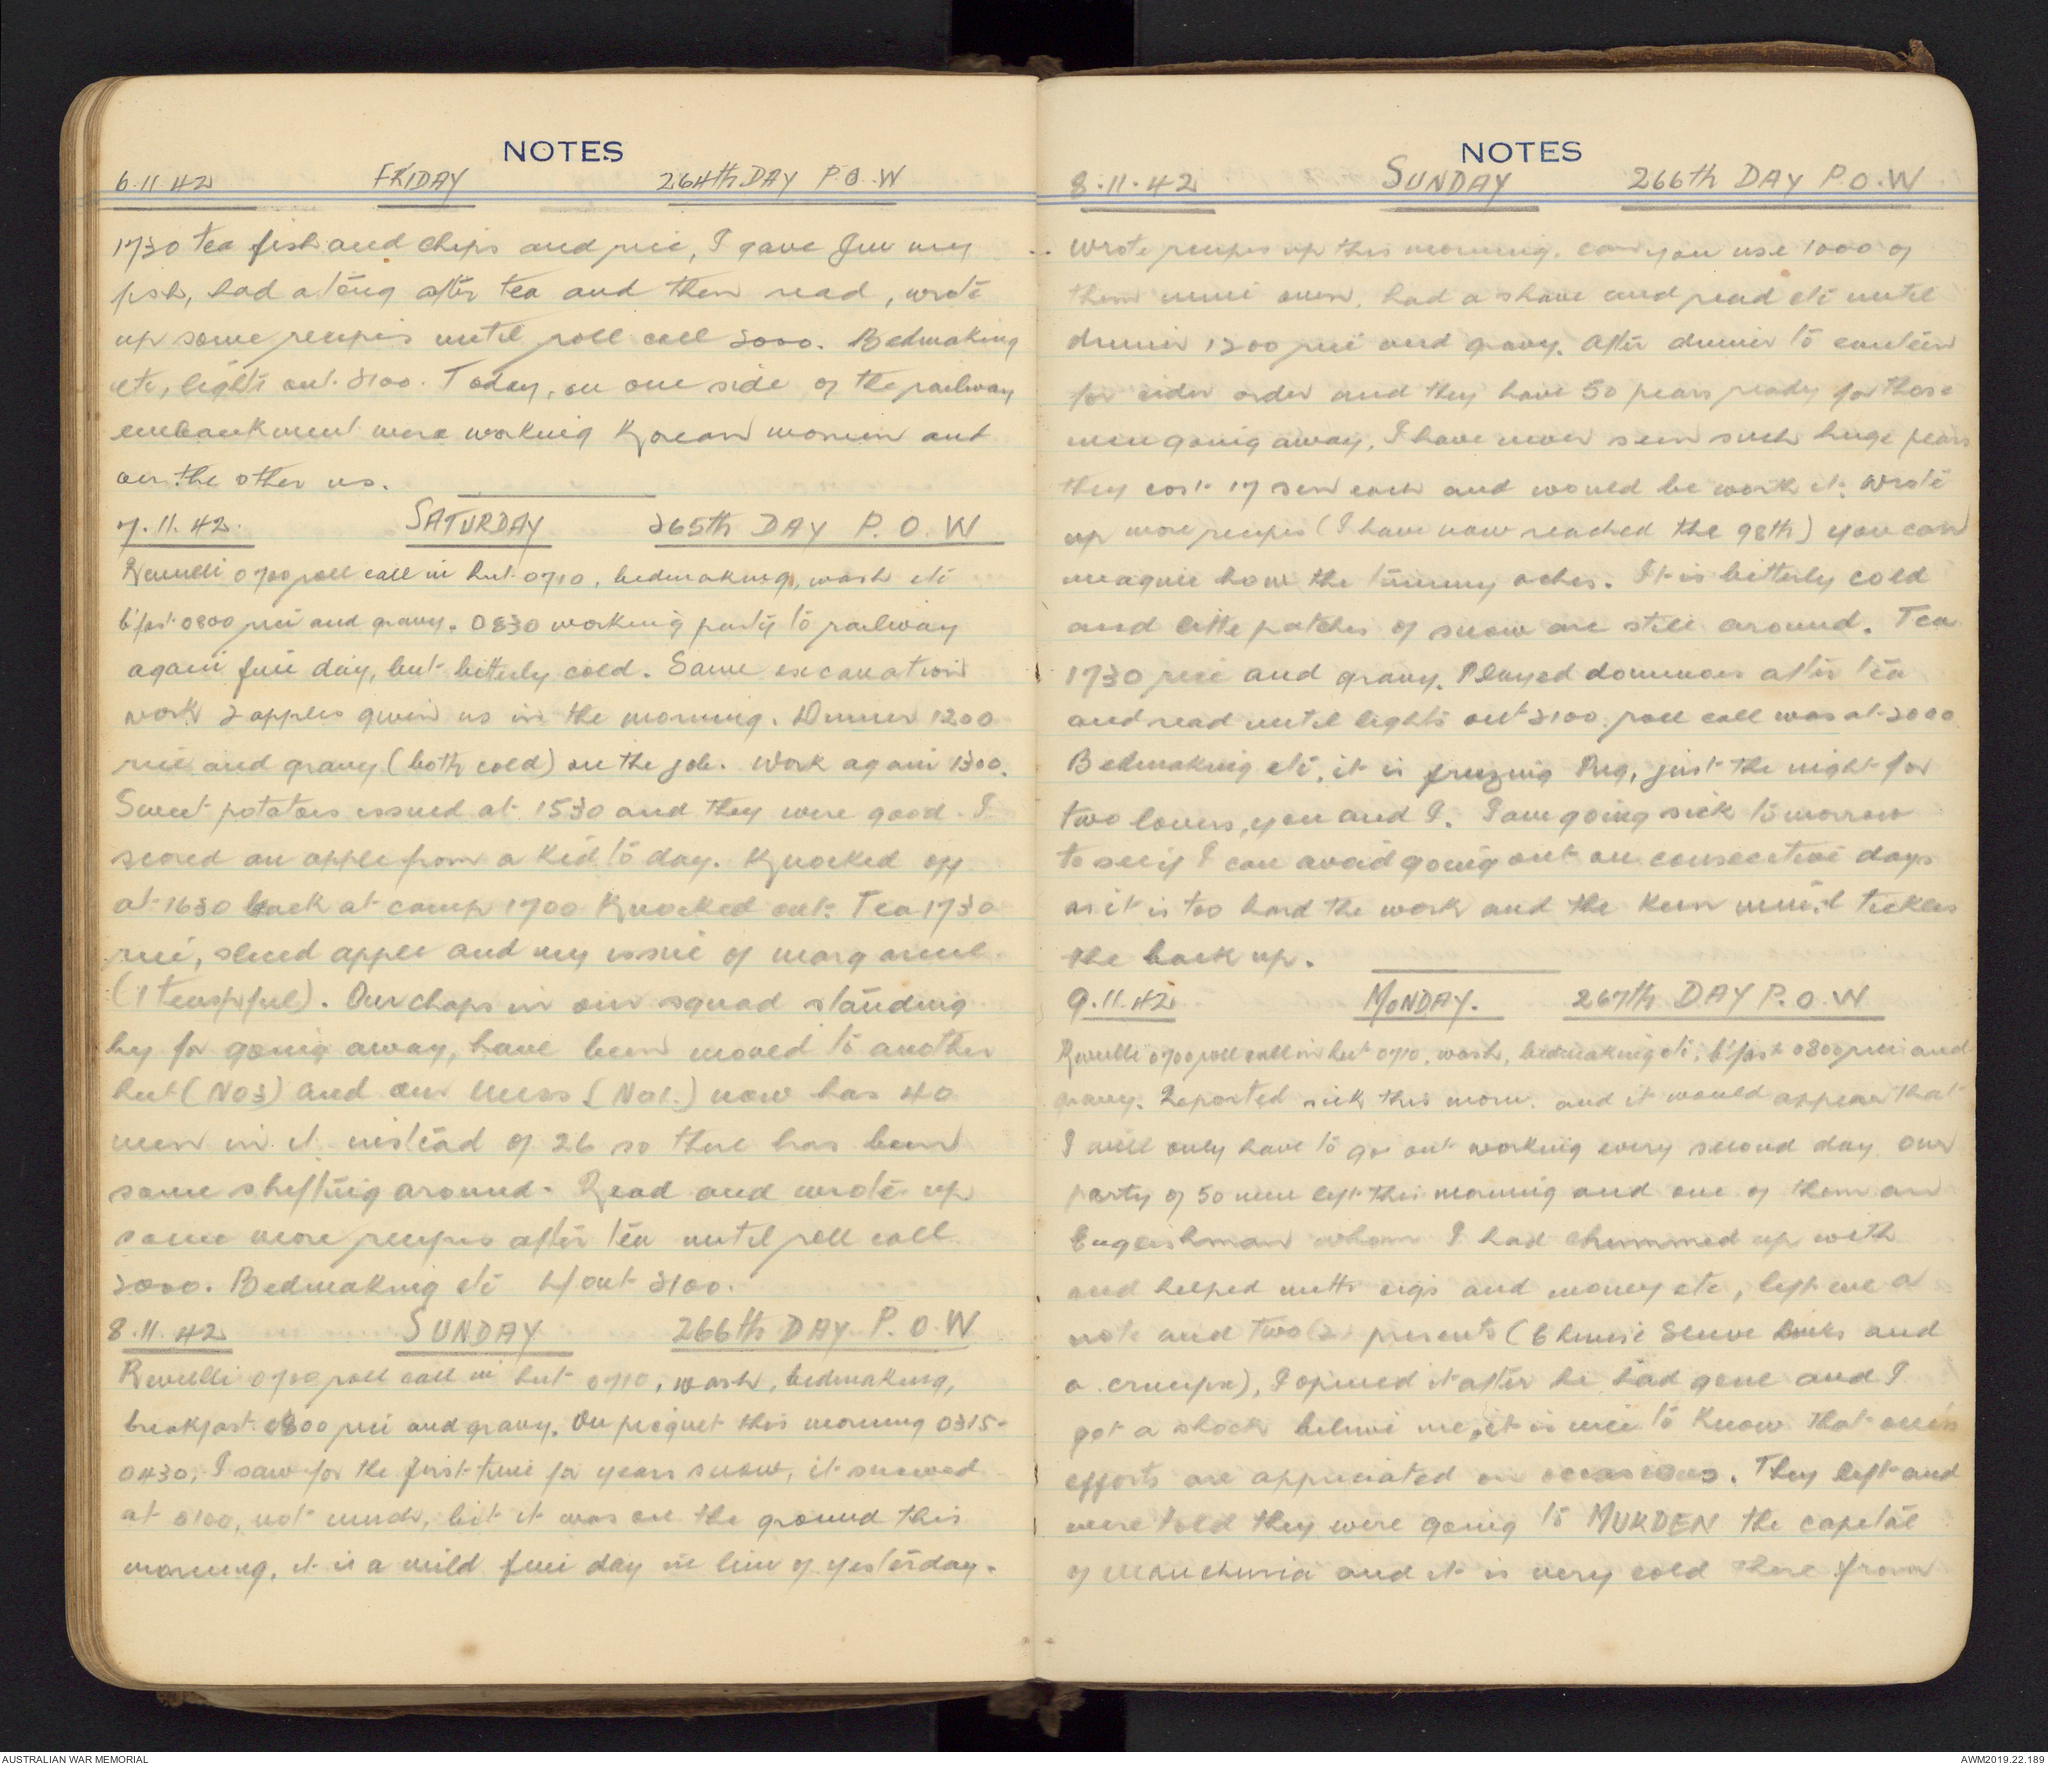 NOTES
6.11.42 FRIDAY 264th DAY P.O.W
1730 tea fish and chips and rice, I gave Jim my
fish, had a long after tea and then read, wrote
up some recipes until roll call 2000. Bedmaking
etc, lights out 2100. Today, on one side of the railway
embankment were working Korean women and
on the other us.
7.11.42. SATURDAY 265th DAY P.O.W
Reveille 0700 roll call in hut 0710, bedmaking, wash etc
b'fast 0800 rice and gravy. 0830 working party to railway
again fine day, but bitterly cold. Same excavation
work 2 apples given us in the morning. Dinner 1200
rice and gravy (both cold) on the job. Work again 1300.
Sweet potatoes issued at 1530 and they were good. I
scored an apple from a kid to day. Knocked off
at 1630 back at camp 1700 Knocked out. Tea 1730
rice, sliced apple and my issue of margarine
(1 teaspful). Our chaps in our squad standing
by for going away, have been moved to another
hut (No3) and our mess (No1.) now has 40
men in it instead of 26 so there has been
some shifting around. Read and wrote up
some more recipes after tea until roll call
2000. Bedmaking etc l/out 2100.
8.11.42 SUNDAY 266th DAY P.O.W
Reveille 0700 roll call in hut 0710, wash, bedmaking,
breakfast 0800 rice and gravy. On picquet this morning 0315-
0430, I saw for the first time for years snow, it snowed
at 0100, not much, bit it was on the ground this
morning, it is a mild fine day in lieu of yesterday.
NOTES
8.11.42 SUNDAY 266th DAY P.O.W
Wrote recipes up this morning. can you use 1000 of
them mine own, had a shave and read etc until
dinner 1200 rice and gravy. After dinner to canteen
for cider order and they have 50 pears ready for those
men going away, I have never seen such huge pears
they cost 17 sen each and would be worth it. Wrote
up more recipes (I have now reached the 98th) you can
imagine how the tummy aches. It is bitterly cold
and little patches of snow are still around. Tea
1730 rice and gravy. Played dominoes after tea
and read until lights out 2100. roll call was at 2000
Bedmaking etc, it is freezing Meg, just the night for
two lovers, you and I. I am going sick to morrow
to see if I can avoid going out on consecutive days
as it is too hard the work and the keen wind tickles
the back up.
9.11.42 MONDAY. 267th DAY P.O.W
Reveille 0700 roll call in hut 0710, wash, bedmaking etc, b'fast 0800 rice and
gravy. Reported sick this morn. and it would appear that
I will only have to go out working every second day. Our
party of 50 men left this morning and one of them an
Englishman whom I had chummed up with
and helped with cigs and money etc, left me a
note and two(2) presents (Chinese Sleeve Links and
a crucifix), I opened it after he had gone and I
got a shock believe me, it is nice to know that one's
efforts are appreciated on occasions. They left and
were told they were going to MUKDEN the capital
of Manchuria and it is very cold there from
AUSTRALIAN WAR MEMORIAL
AWM2019.22.189